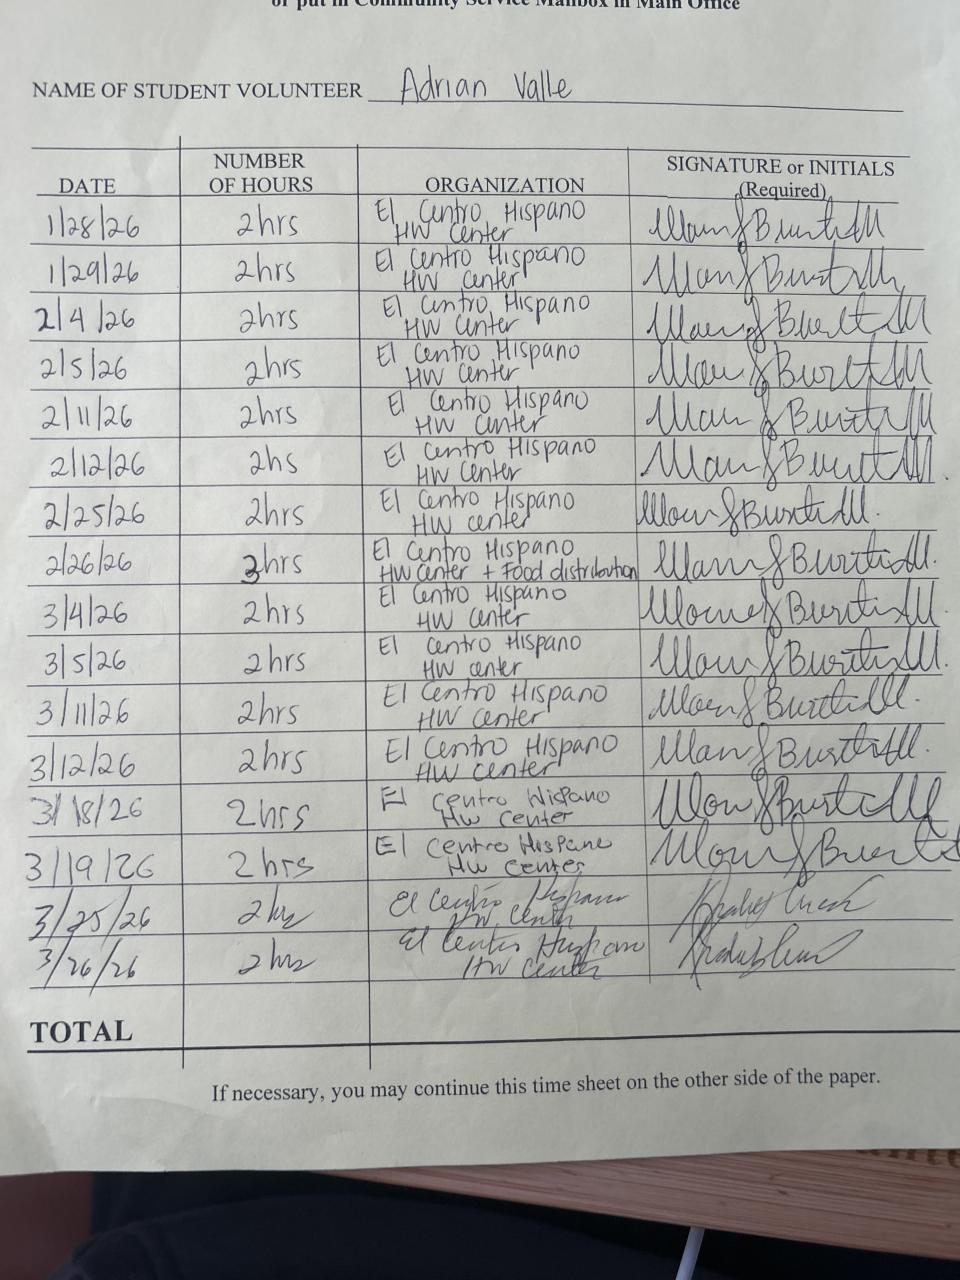 or put in Community Service Mailbox in Main Office
NAME OF STUDENT VOLUNTEER Adrian Valle
DATE NUMBER OF HOURS ORGANIZATION SIGNATURE or INITIALS (Required)
1/28/26 2hrs El Centro Hispano HW Center
1/29/26 2hrs El Centro Hispano HW Center
2/4/26 2hrs El Centro Hispano HW Center
2/5/26 2hrs El Centro Hispano HW Center
2/11/26 2hrs El Centro Hispano HW Center
2/12/26 2hs El Centro Hispano HW Center
2/25/26 2hrs El Centro Hispano HW center
2/26/26 3hrs El Centro Hispano HW Center + Food distribution
3/4/26 2hrs El Centro Hispano HW Center
3/5/26 2hrs El Centro Hispano HW center
3/11/26 2hrs El Centro Hispano HW Center
3/12/26 2hrs El Centro Hispano HW center
3/18/26 2hrs El Centro Hispano Hw center
3/19/26 2hrs El Centro Hispano Hw Center
3/25/26 2hrs El Centro Hispano HW Center
3/26/26 2hrs El Centro Hispano HW Center
TOTAL
If necessary, you may continue this time sheet on the other side of the paper.